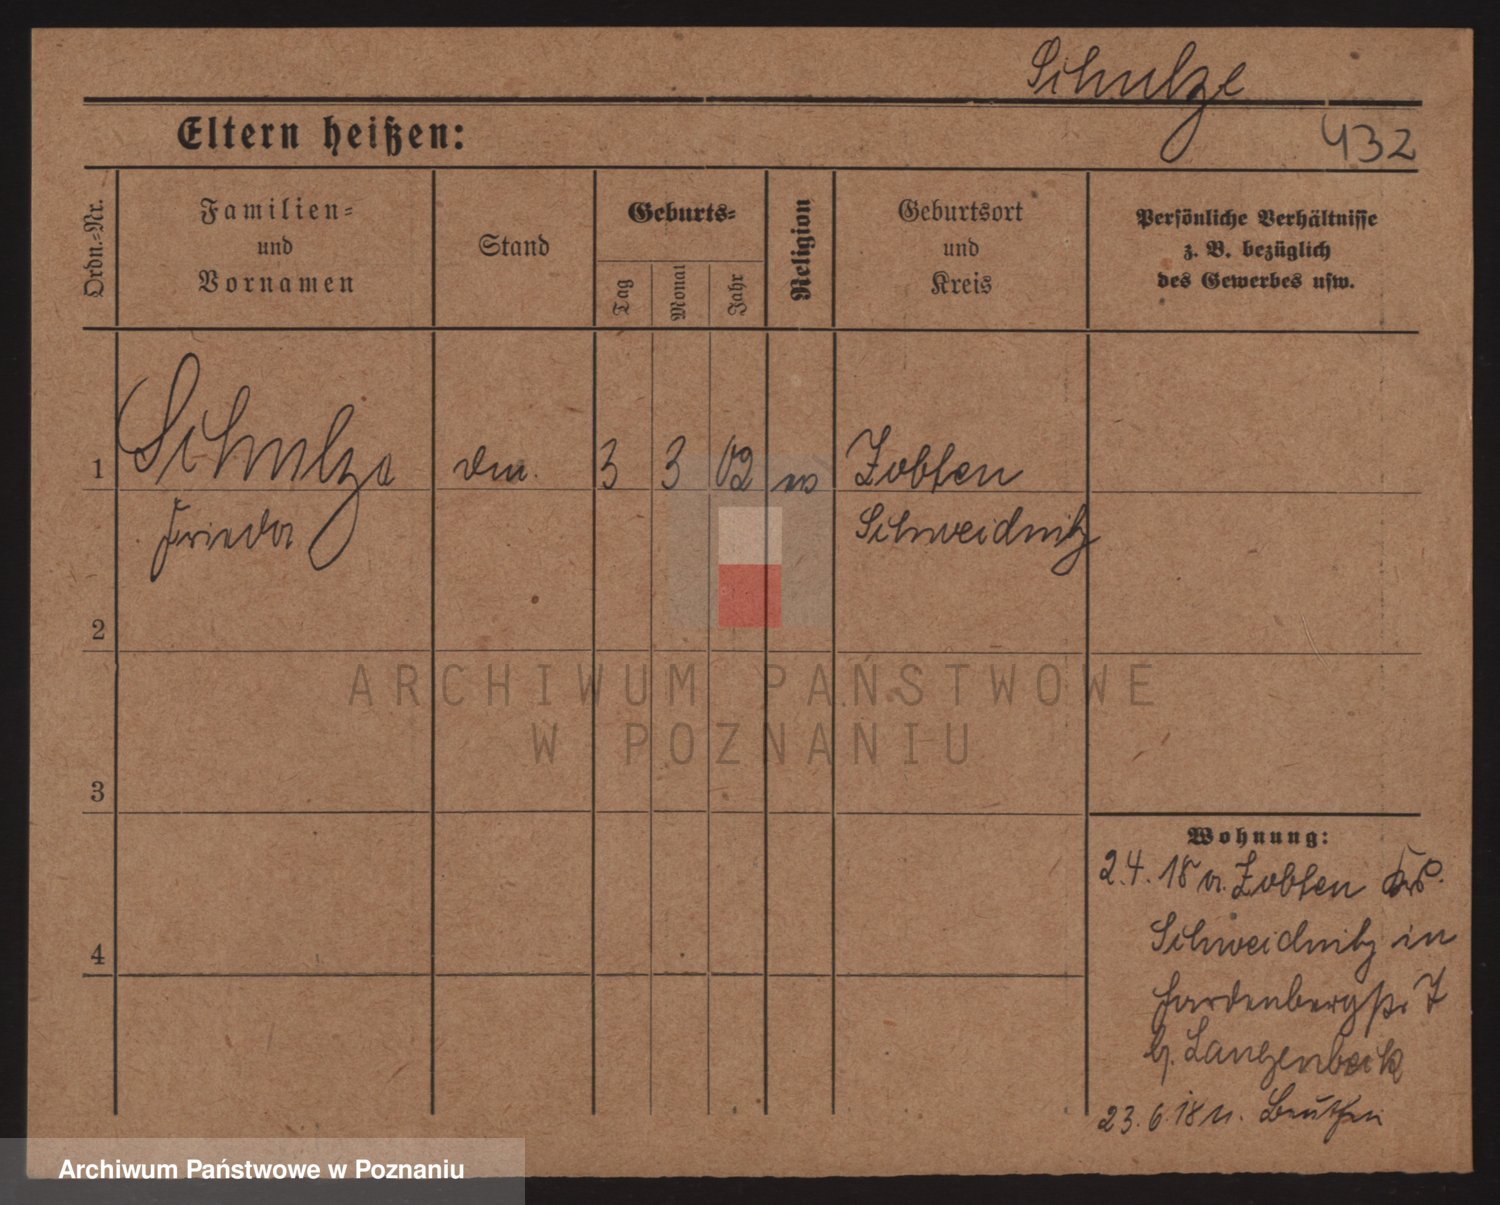 Schulze
432
Eltern heißen:
Ordn.-Nr.
Familien-
und
Vornamen
Stand
Geburts-
Tag
Monat
Jahr
Religion
Geburtsort
und
Kreis
Persönliche Verhältnisse
z. B. bezüglich
des Gewerbes usw.
1 Schulze 3 3 02 Zobten
Frieda Schweidnitz
2
3
4
Wohnung:
2.4.18 v. Zobten Krs.
Schweidnitz in
Hardenbergstr. 7
b. Langenbeck
23.6.18 n. Beuthen
ARCHIWUM PAŃSTWOWE
W POZNANIU
Archiwum Państwowe w Poznaniu